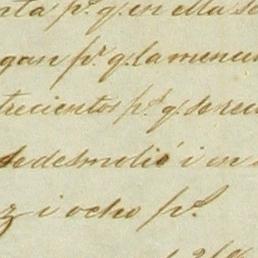 nta p.r q. en ella se
gan p.r q. la mencio
trecientos p.s q. se rec
se desmolió i en
z i ocho p.s